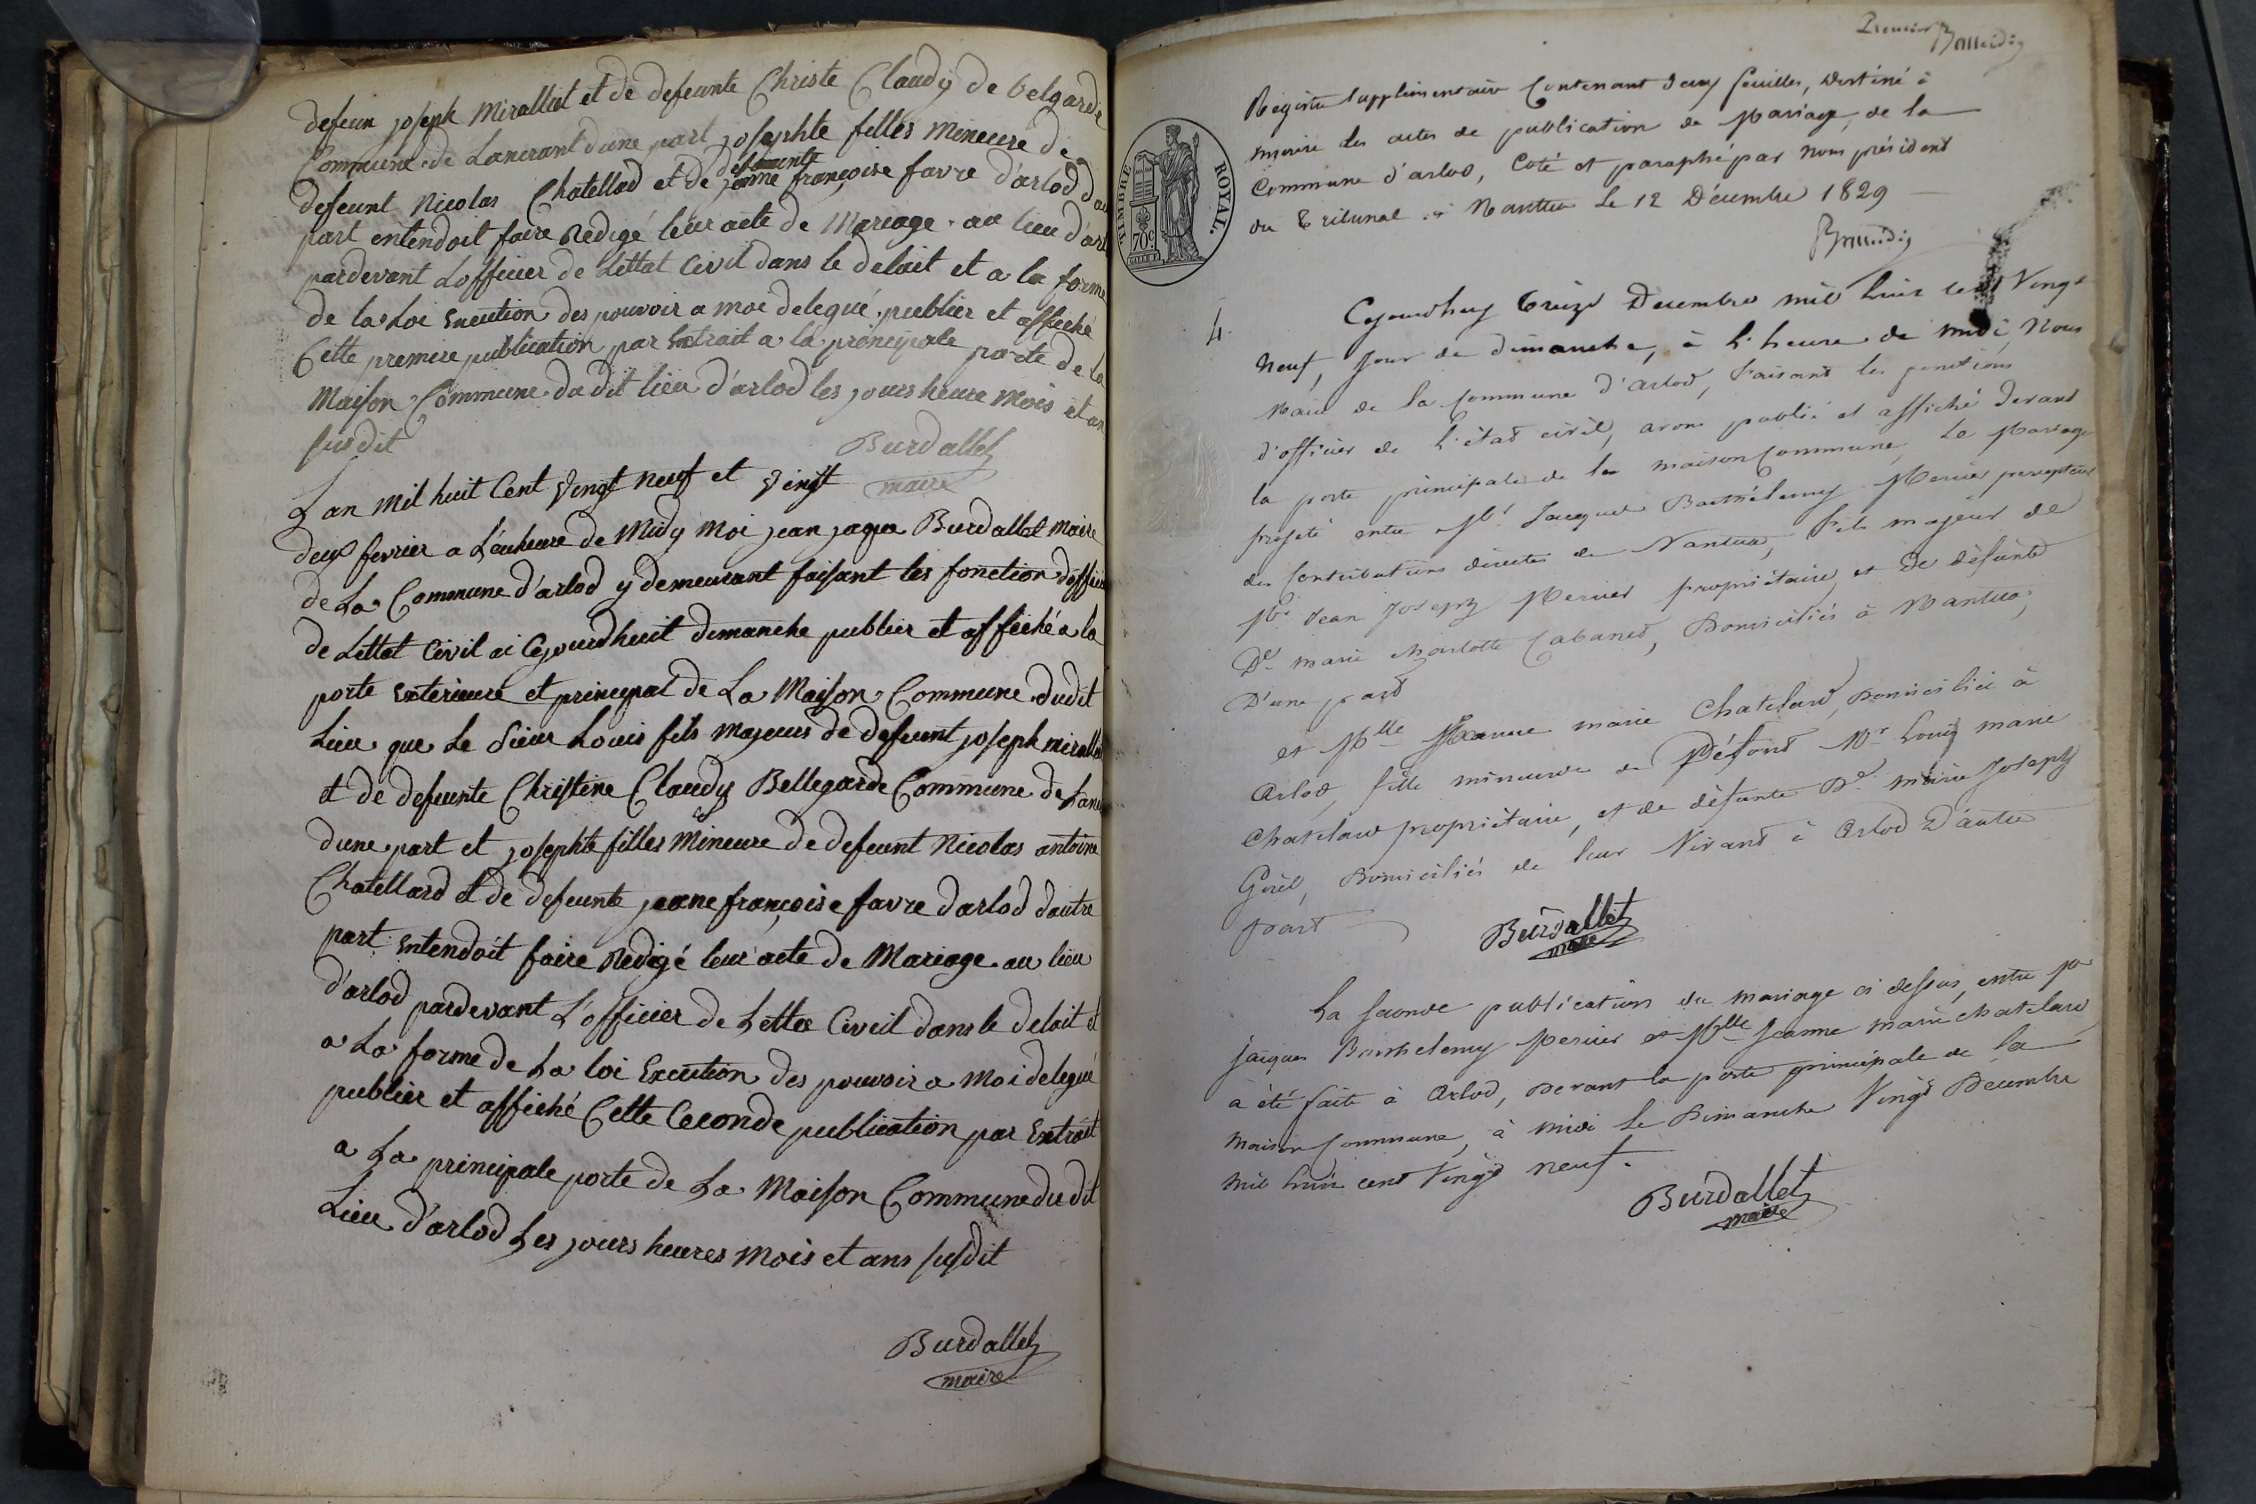 defeun joseph Mirallat et de defeunte Christe Claudy de belgarde
Commune de Lancrant dune part josephte filles mineure de
defeunt Nicolas Chatellad et de defeunte janne françoise favre d'arlod dau
part entendoit faire Redigé leur acte de Mariage au lieu d'arl
pardevant Lofficier de Lettat Civil dans le delait et a la forme
de la Loi Execution des pouvoir a moi delegué publier et affiché
Cette premiere publication par Extrait a la principale porte de la
Maison Commune du dit lieu d'arlod les jours heure Mois et an
susdit
Burdallet
maire
Lan Mil huit Cent vingt neuf et vingt
deux fevrier a L'euheure de Midy Moi jean jaque Burdallet Maire
de La Commune d'arlod y demeurant faisant les fonction d'officier
de Lettat Civil ai Cejourdhuit dimanche publier et affiché a la
porte Exterieure et principal de La Maison Commune dudit
Lieu que Le Sieur Louis fils majeurs de defeunt joseph miralla
et de defeunte Christine Claudy Bellegarde Commune de Lan
dune part et josephte filles Mineure de defeunt Nicolas antoine
Chatellard et de defeunte jeane françoise favre darlod dautre
part Entendoit faire Redigé leur acte de Mariage au lieu
d'arlod pardevant L'officier de Lettat Civeil dans le delait et
a La forme de La loi Execution des pouvoir a Moi delegué
publier et affiché Cette Ceconde publication par Extrait
a La principale porte de La Maison Commune du dit
Lieu d'arlod Les jours heures Mois et ans susdit
Burdallet
maire
Premier
Registre Supplémentaire Contenant deux feuilles, Destiné à
inscrire les actes de publication de Mariage, de la
Commune d'arlod, Coté et paraphé par nous président
du Tribunal à Nantua Le 12 Décembre 1829
TIMBRE ROYAL.
70c.
4.
Cejourdhuy treize Decembre mil huit cent Vingt
Neuf, jour de dimanche, à l'heure de midi, Nous
Maire de la Commune d'arlod, faisant les fonctions
d'officier de l'état civil, avons publié et affiché devant
la porte principale de la maison Commune, Le Mariage
projeté entre Mr. Jacques Barthélemy Mercier percepteur
des Contributions directes de Nantua, fils majeur de
Mr. Jean Joseph Mercier propriétaire, et De défunte
De. marie charlotte Cabanet, Domiciliés à Nantua,
D'une part
et Mlle Jeanne marie Chatelard, Domiciliée à
Arlod, fille mineure de Défunt Mr. Louis marie
Chatelard propriétaire, et de défunte De. marie Joseph
Gorel, Domiciliés de leur Vivant à Arlod D'autre
part
Burdallet
maire
La seconde publication du mariage ci dessus, entre Mr
Jaiques Barthelemy Mercier et Mlle Jeanne marie chatelard
a été faite à Arlod, Devant la porte principale de la
maison Commune, à midi le Dimanche Vingt Decembre
mil huit cent Vingt neuf.
Burdallet
maire